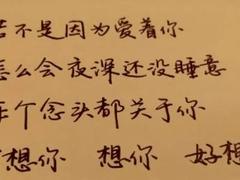 若不是因为爱着你
怎么会夜深还没睡意
每个念头都关于你
想你 想你 好想